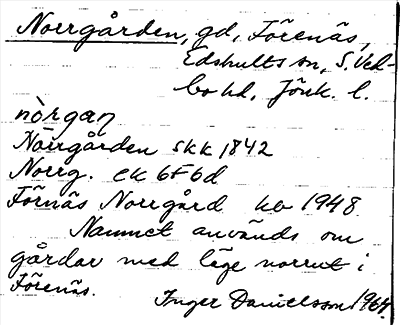 Norrgården, gd, Förenäs,
Edshults sn, S. Ved-
bo hd, Jönk. l.
nòrgaɳ
Nörrgården skk 1842
Norrg. ek 6F6d
Förnäs Norrgård kb 1948
Namnet används om
gårdar med läge norrut i
Förenäs.
Inger Danielsson 1964.